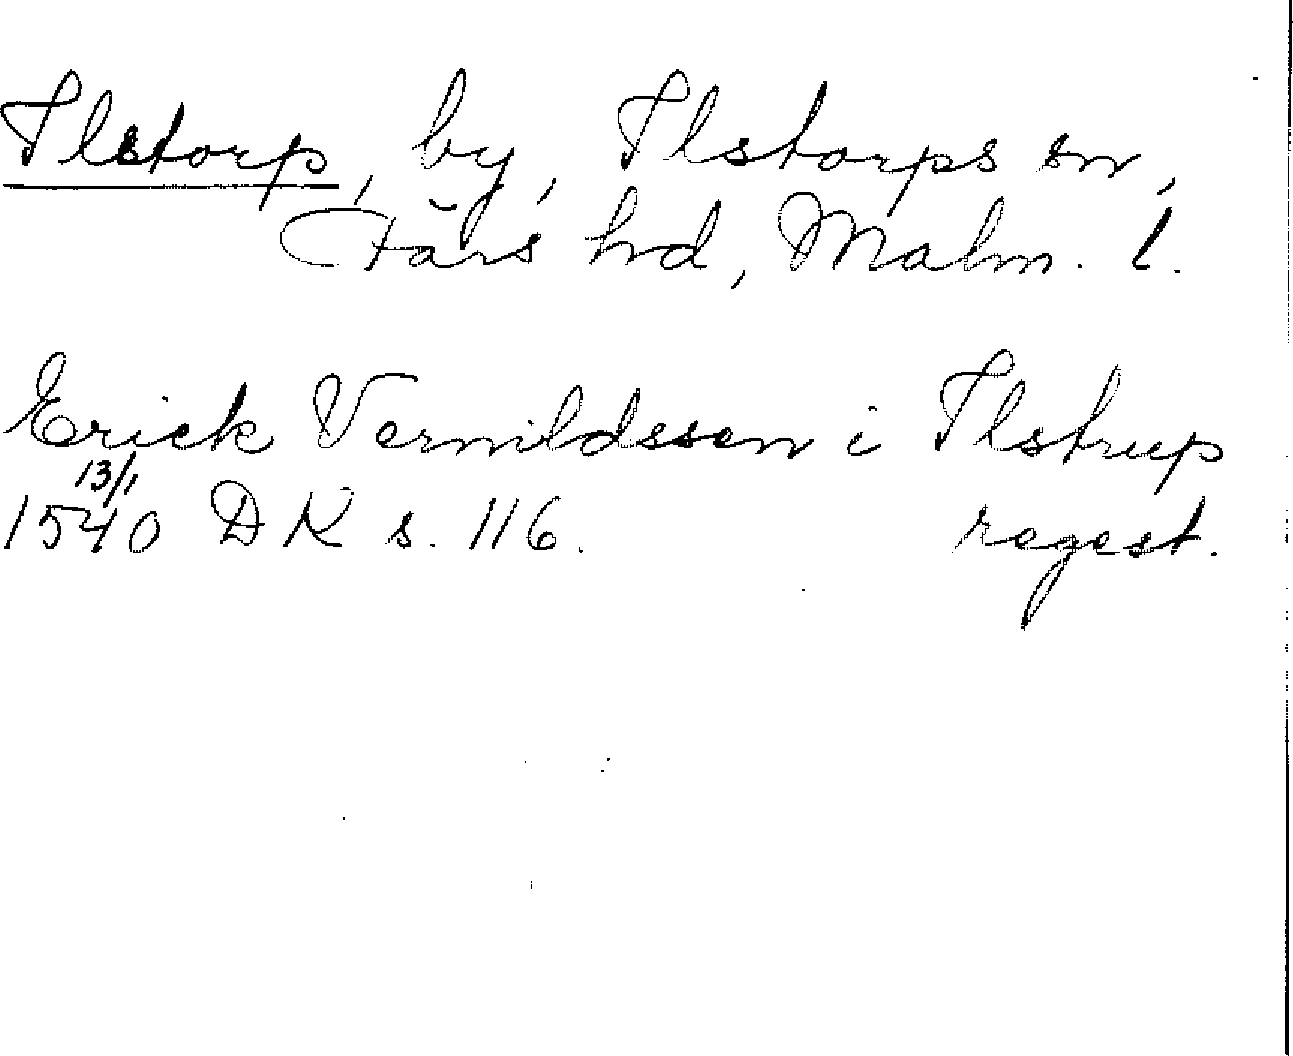 Ilstorp, by, Ilstorps sn,
Färs hd, Malm. l.
Erick Vernildssen i Ilstrup
13/1
1540 DK s. 116. regest.